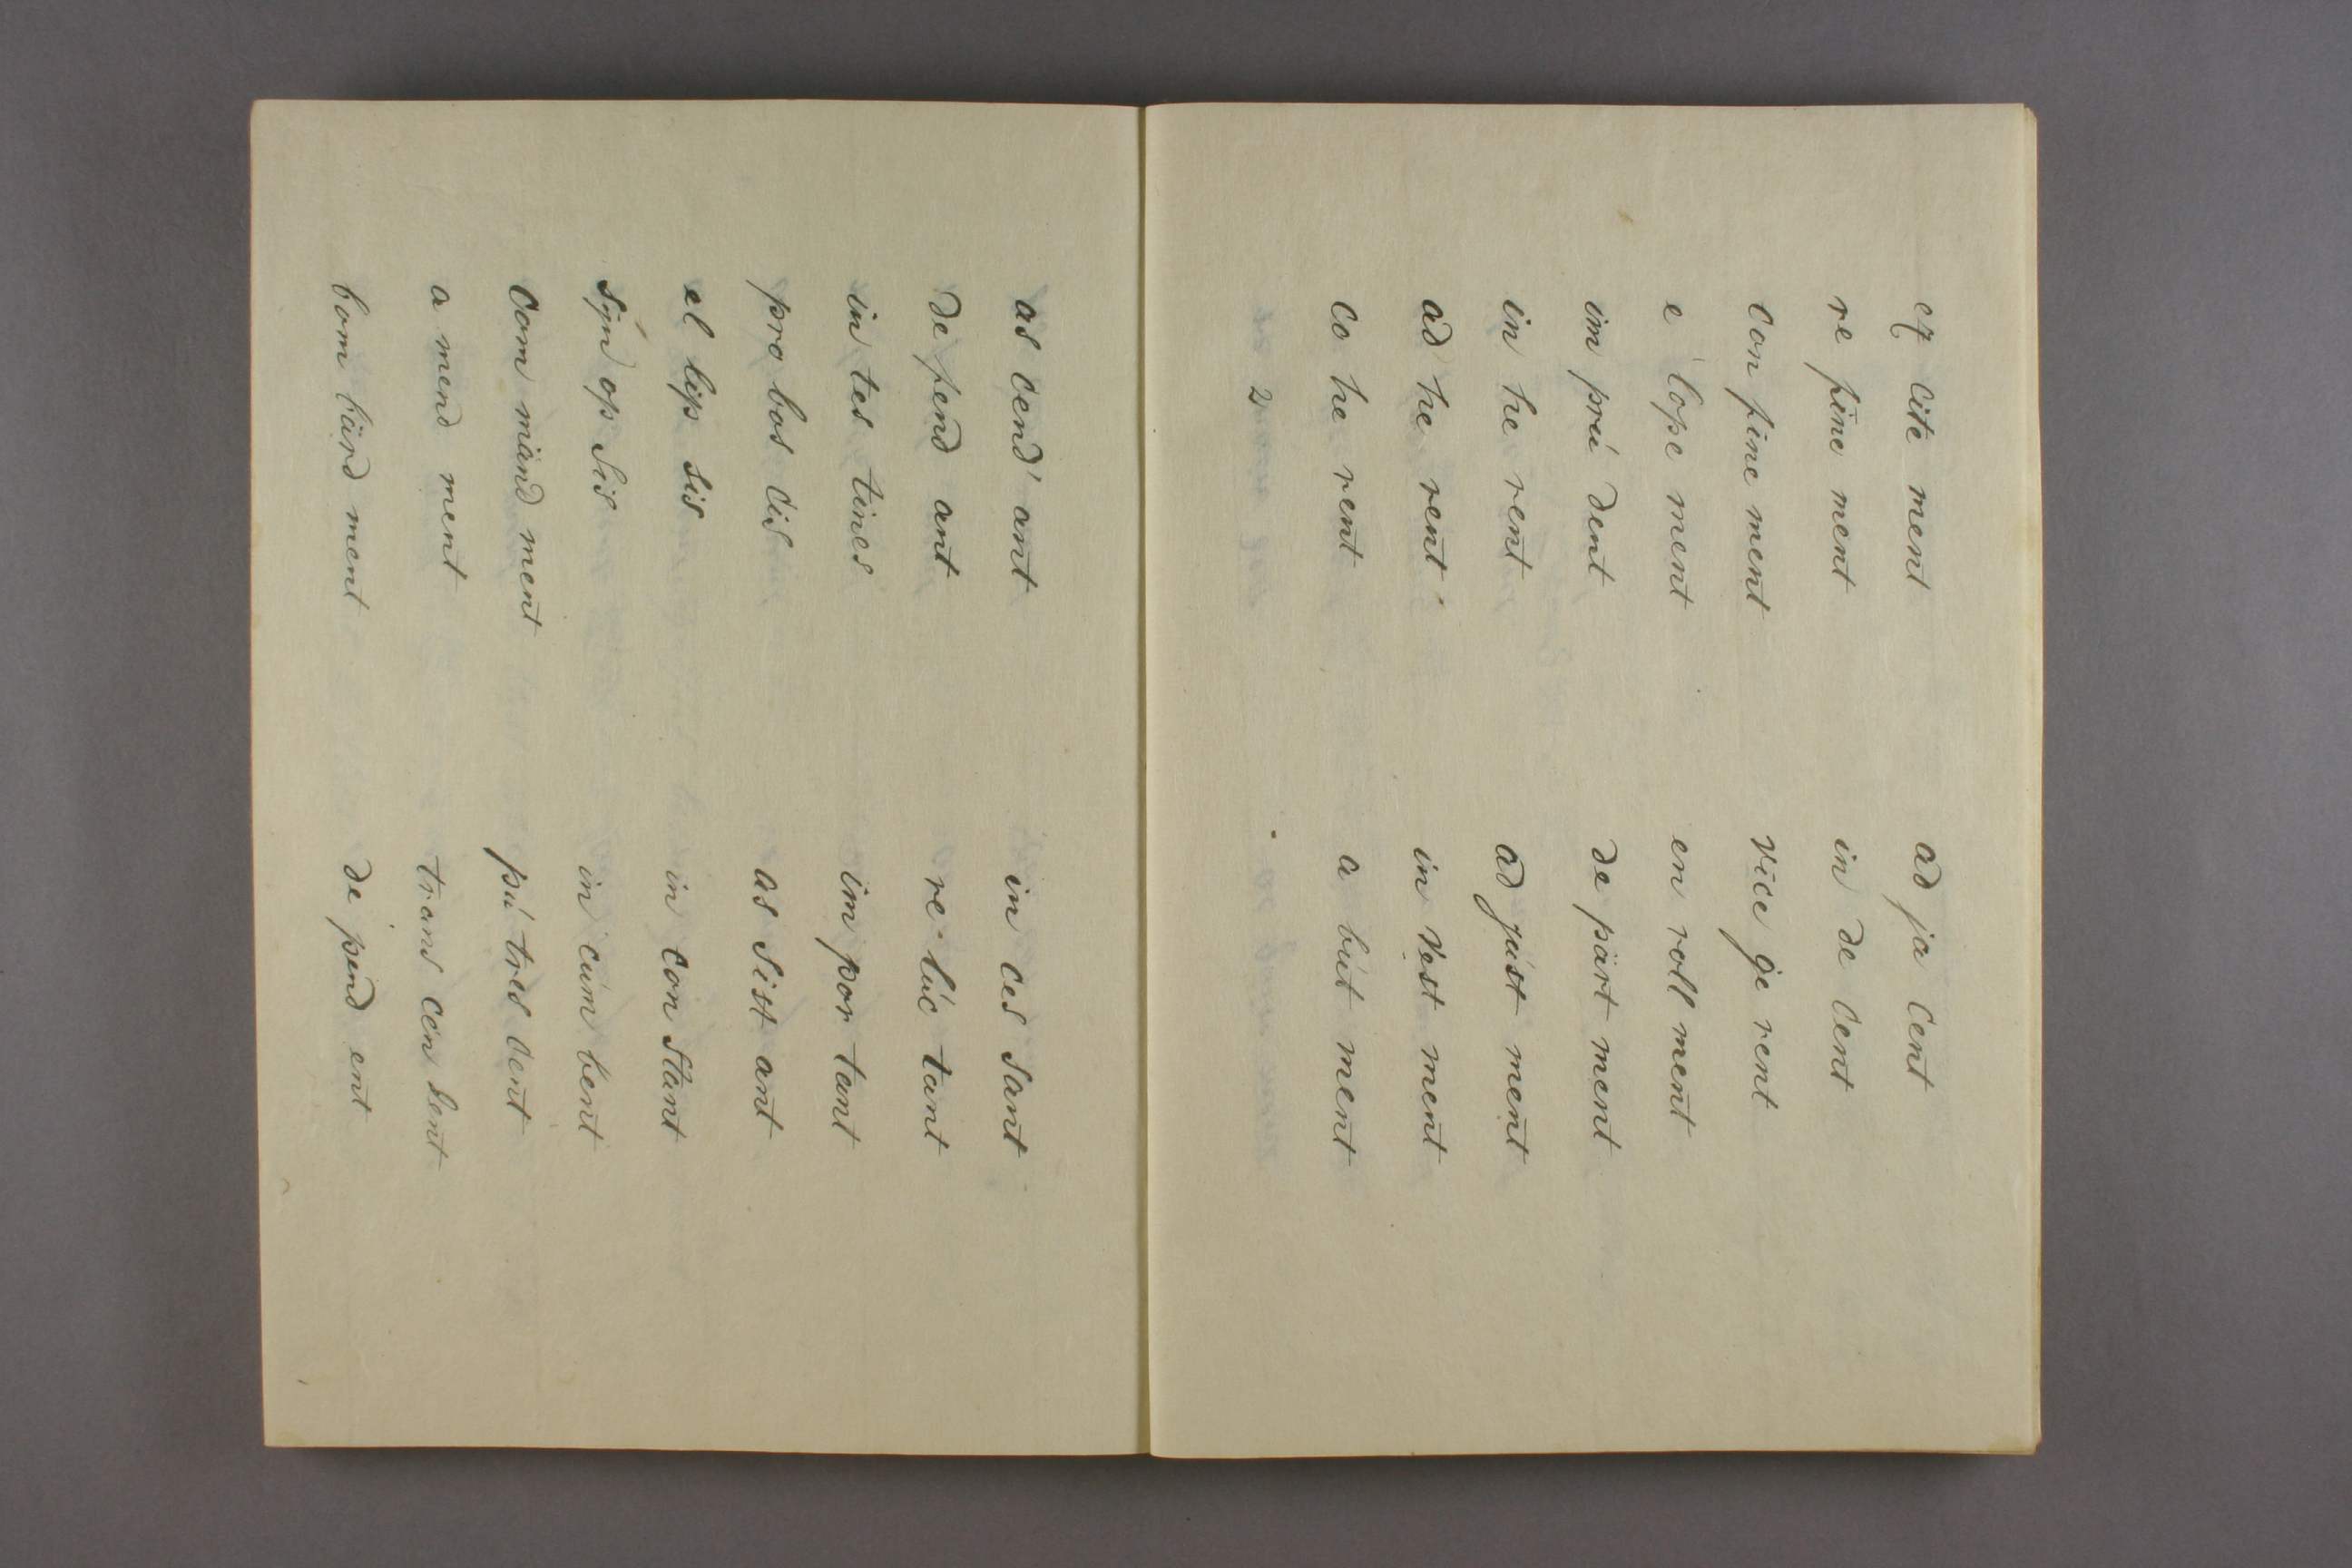 ex cite ment ad ja cent
re fine ment in de cent
con fine ment vice ge rent
e lope ment en roll ment
im prú dent de pärt ment
in he rent ad júst ment
ad he rent in vest ment
co he rent a bút ment
2
as cend' ant in ces sant
de fend ant re lúc tant
in tes tines im por tant
pro bos cis as sist ant
el lip sis in con stant
sýn op sis in cúm bent
com mänd ment pú tres cent
a mend ment trans cen dent
bom bärd ment de pend ent